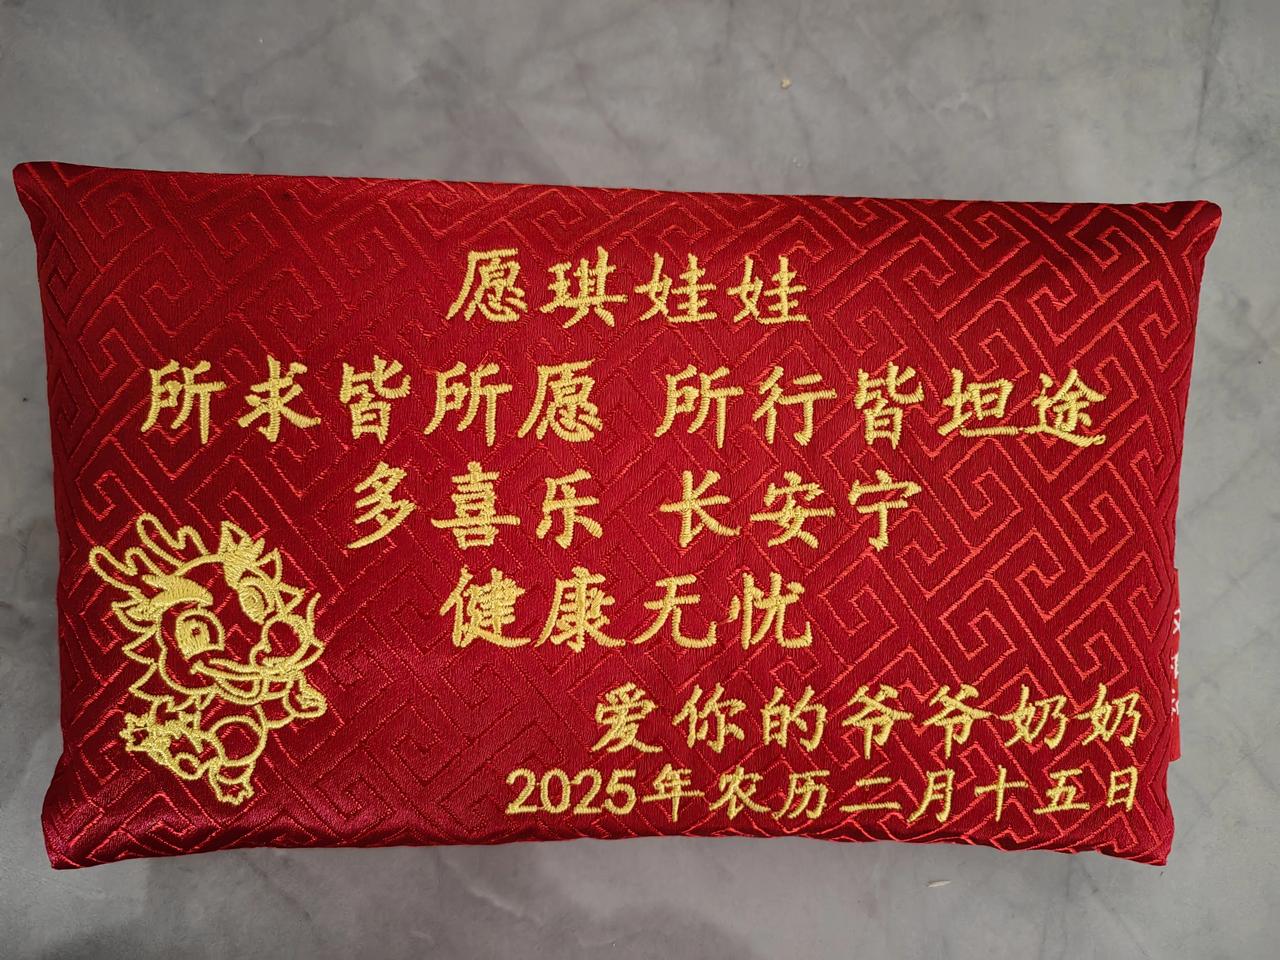 愿琪娃娃
所求皆所愿 所行皆坦途
多喜乐 长安宁
健康无忧
爱你的爷爷奶奶
2025年农历二月十五日